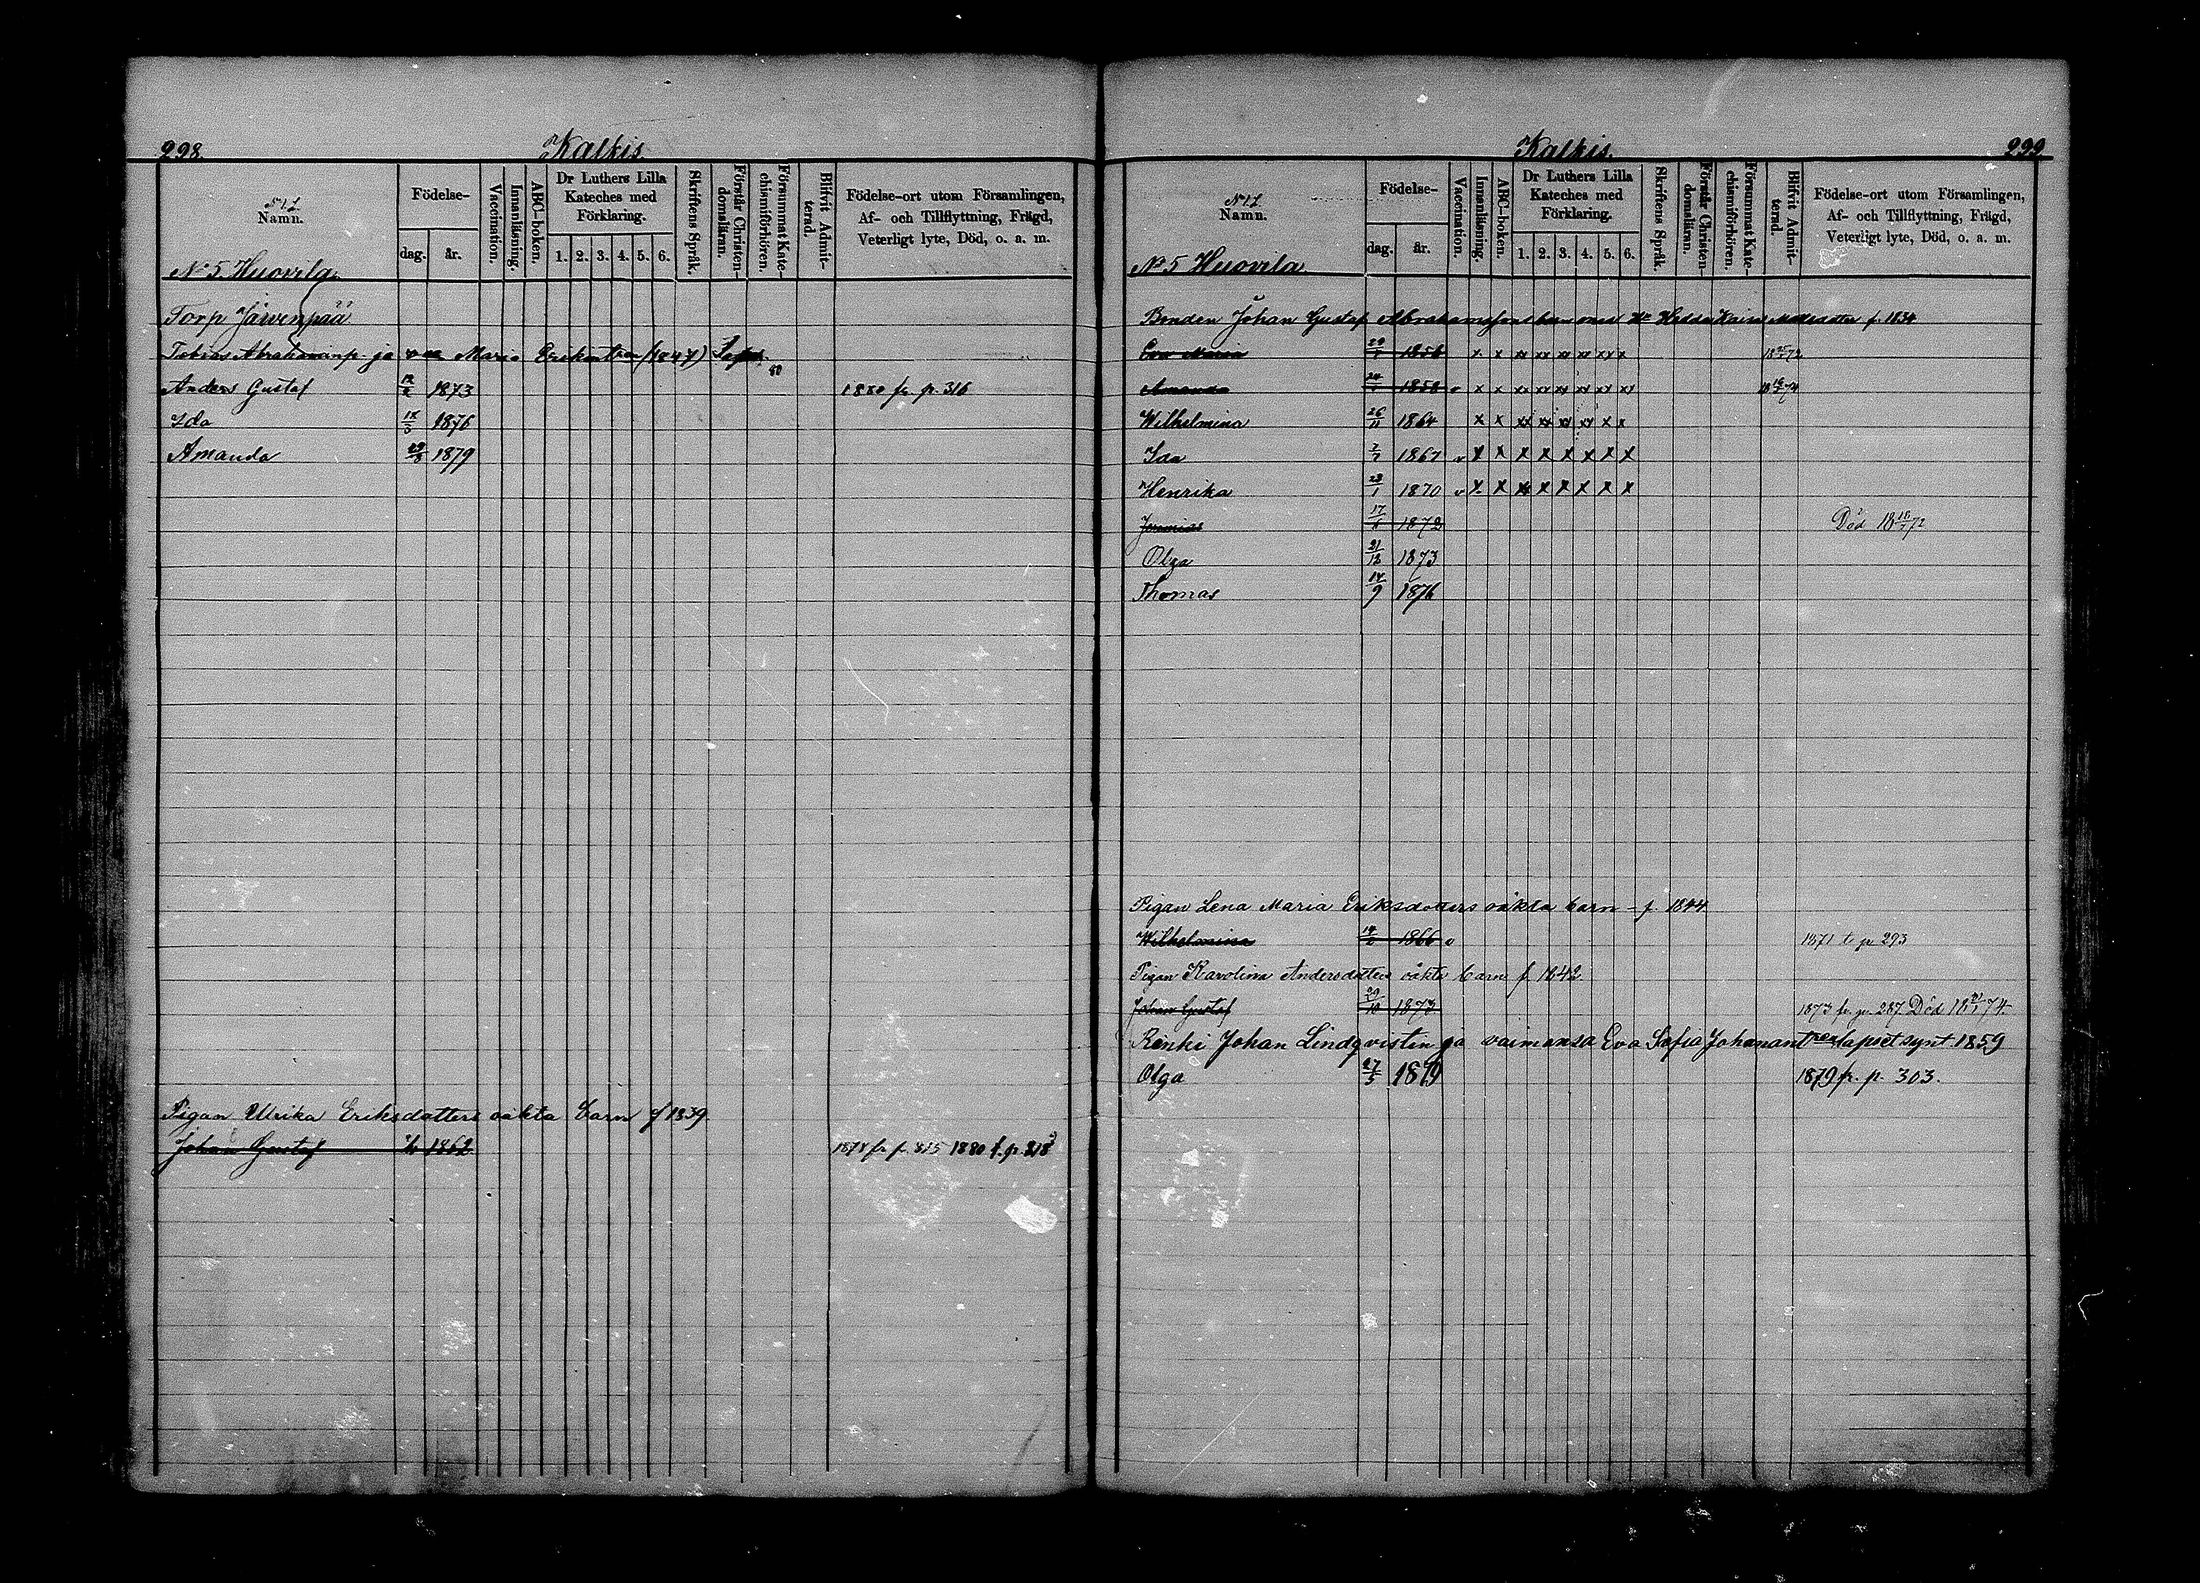 298.
Kalkis.
Namn.
Födelse-
dag.
år.
Vaccination.
Innanläsning.
ABC-boken.
Dr Luthers Lilla
Kateches med
Förklaring.
1. 2. 3. 4. 5. 6.
Skriftens Språk.
Förstår Christen-
domsläran.
Försummat Kate-
chismiförhören.
Blifvit Admit-
terad.
Födelse-ort utom Församlingen,
Af- och Tillflyttning, Frägd,
Veterligt lyte, Död, o. a. m.
No 5 Huovila
Torp Jäwenpää
Tobias Abrahaminp. ja Maria (1847)
Anders Gustaf 1873 1880 fr. p. 316
Ida 1876
Amanda 1879
Pigan Ulrika Eriksdotters oäkta barn f 1839
Johan Gustaf 1862 1878 fr p. 315 1880 t. p. 318
Kalkis.
299
Namn.
Födelse-
dag.
år.
Vaccination.
Innanläsning.
ABC-boken.
Dr Luthers Lilla
Kateches med
Förklaring.
1. 2. 3. 4. 5. 6.
Skriftens Språk.
Förstår Christen-
domsläran.
Försummat Kate-
chismiförhören.
Blifvit Admit-
terad.
Födelse-ort utom Församlingen,
Af- och Tillflyttning, Frägd,
Veterligt lyte, Död, o. a. m.
No 5 Huovila
Bonden Johan Gustaf Abrahamssons barn med Hu Hedda Kaisa f. 1834
Eva Maria x x xx xx xx xx xx x
Amanda 1858 v x x xx xx xx xx xx xx
Wilhelmina 26/11 1864 x x xx xx xx xx x x
Ida 1867 v x x x x x x x x
Henrika 23/1 1870 v x x x x x x x x
Jeremias 1872 Död
Olga 21/12 1873
Thomas 14/9 1876
Pigan Lena Maria Eriksdotters oäkta barn - f. 1844
Wilhelmina 1866 v 1871 t. p 293
Pigan Karolina Andersdotters oäkta barn f 1842
Johan Gustaf 29/10 1873 1873 fr. p. 287. Död
Renki Johan Lindqvistin ja vaimonsa Eva Sofia Johanantren lapset synt. 1859
Olga 27/3 1879 1879 fr. p. 303.